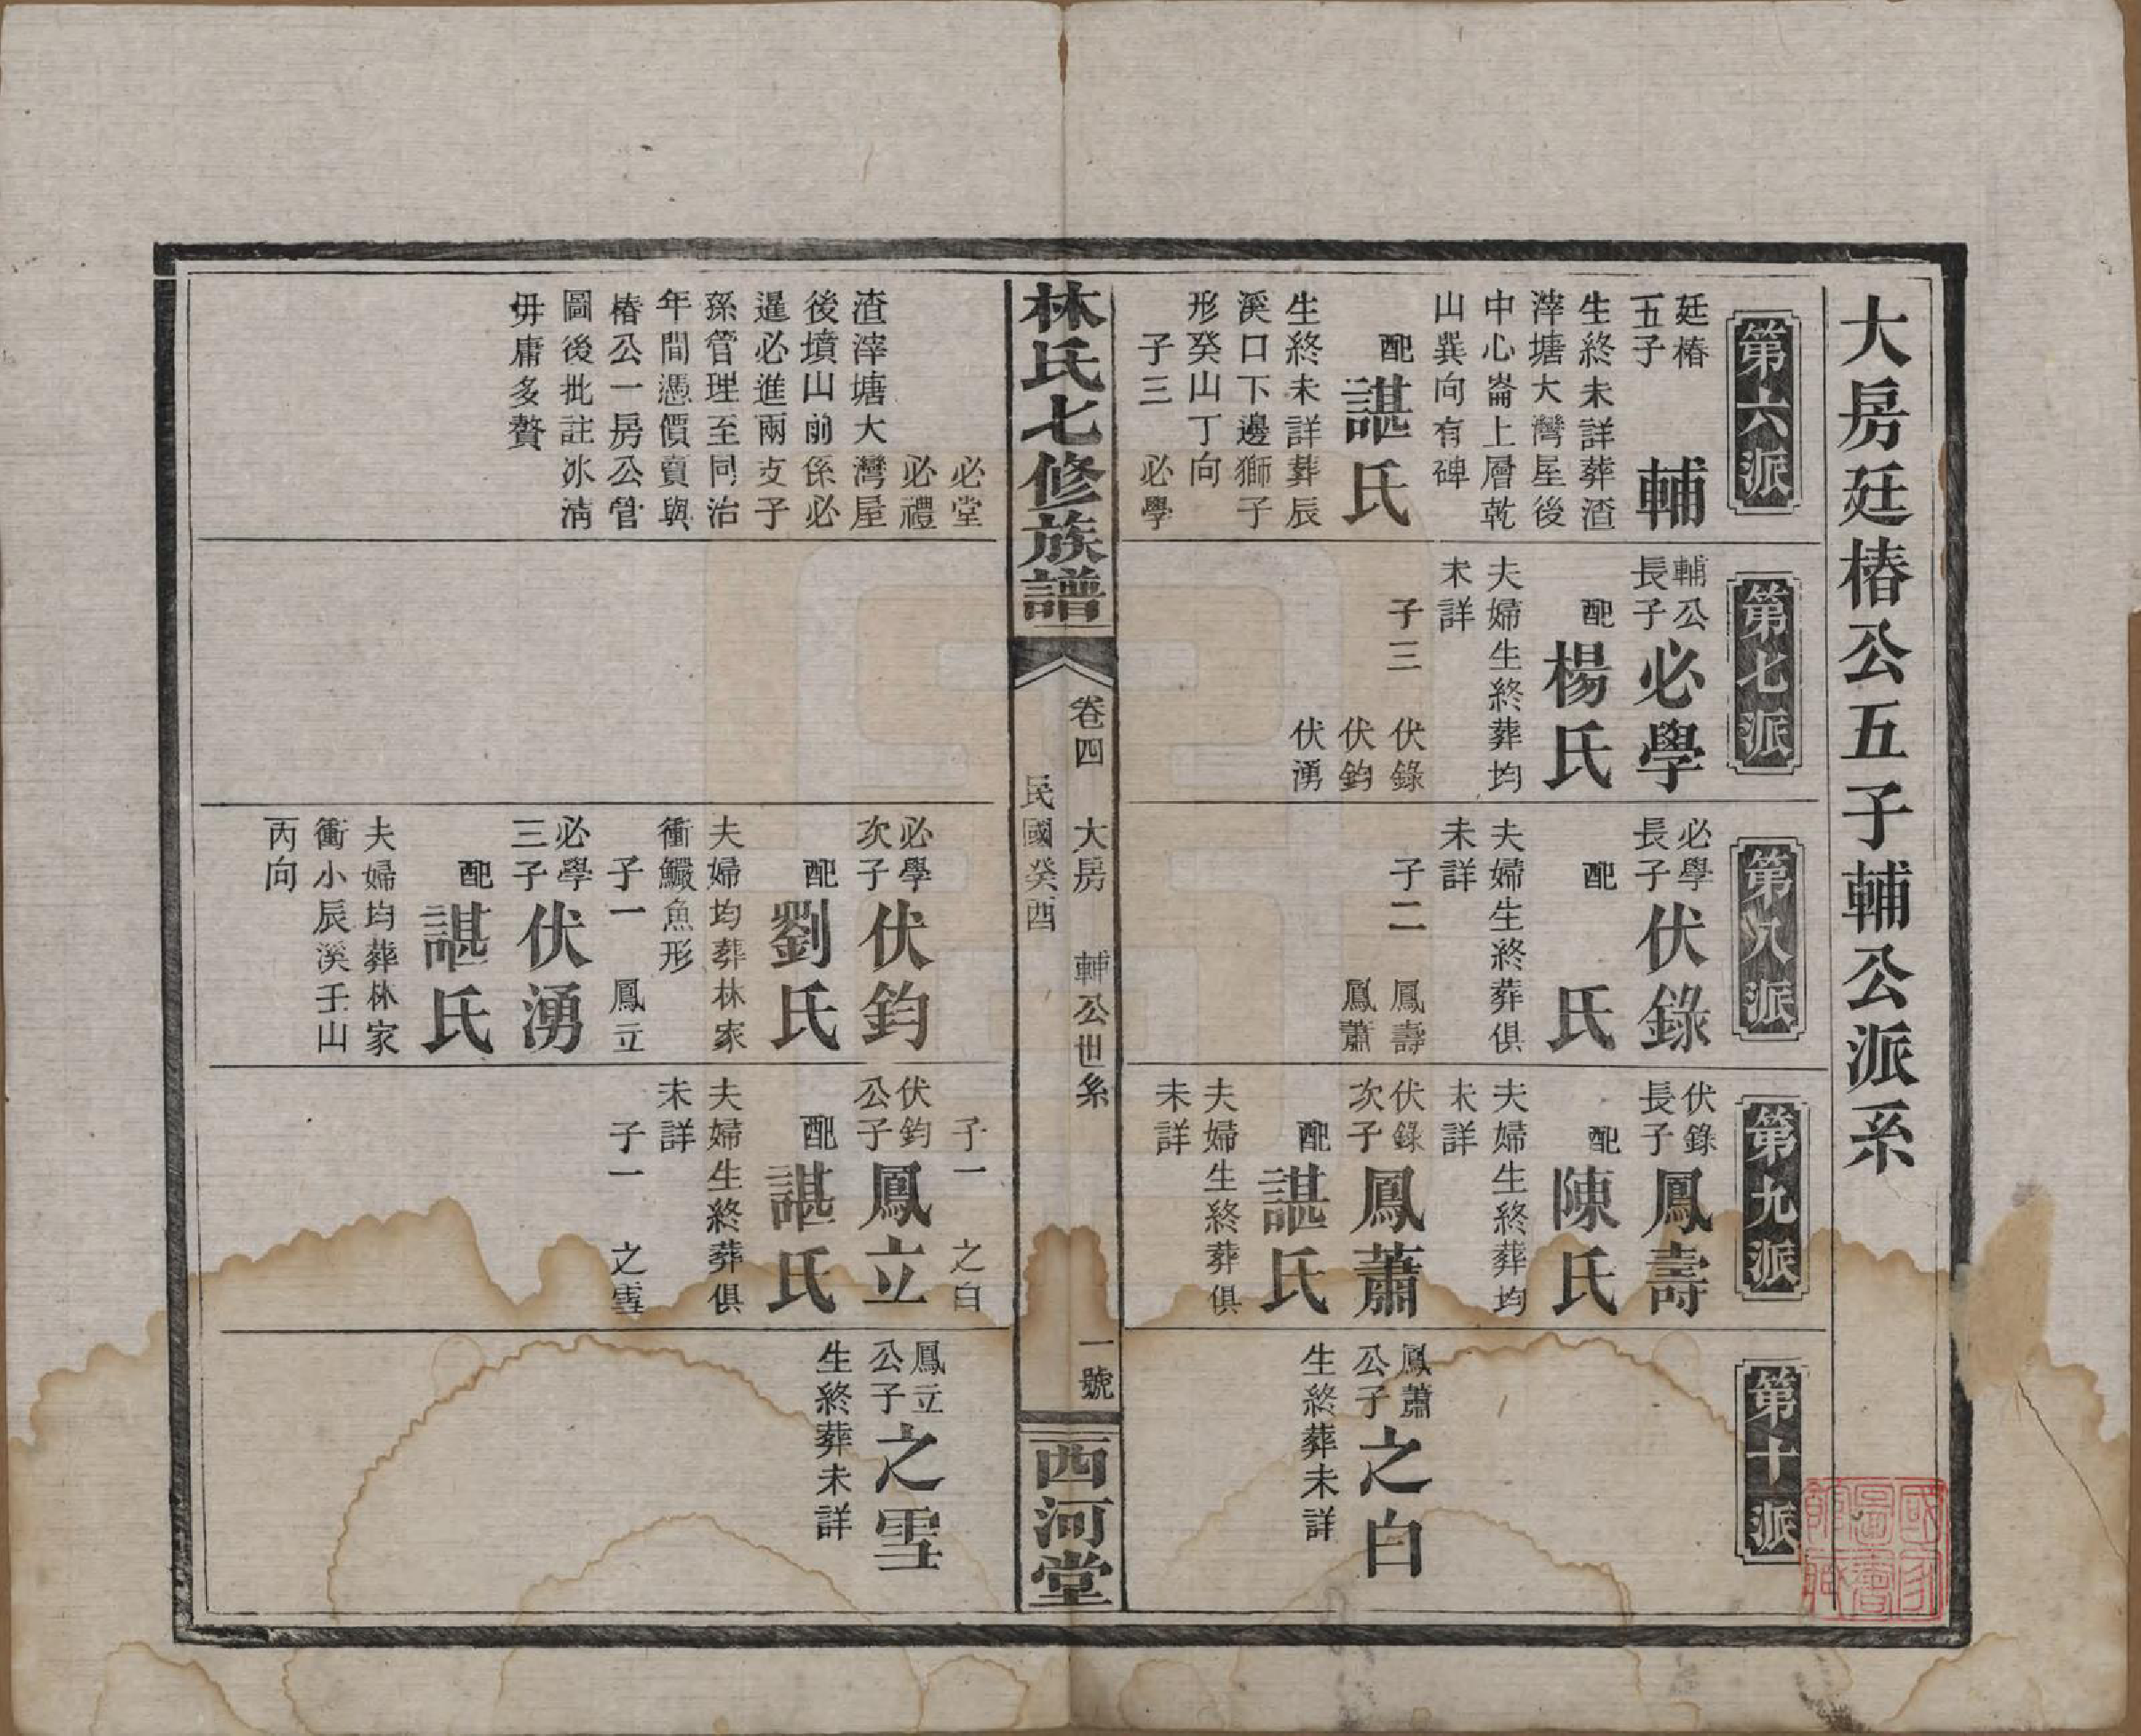 大房廷椿公五子輔公派系
第六派
廷椿
五子
輔
生終未詳葬渣
滓塘大灣屋後
中心崙上層乾
山巽向有碑
配諶氏
生終未詳葬辰
溪口下邊獅子
形癸山丁向
子三 必學
必堂
必禮
渣滓塘大灣屋
後墳山前係必
暹必進兩支子
孫管理至同治
年間憑價賣與
椿公一房公管
圖後批註冰清
毋庸多贅
第七派
輔公
長子
必學
配楊氏
夫婦生終葬均
未詳
子三 伏錄
伏鈞
伏湧
第八派
必學
長子
伏錄
配 氏
夫婦生終葬俱
未詳
子二 鳳壽
鳳蕭
必學
次子
伏鈞
配劉氏
夫婦均葬林家
衝鱖魚形
子一 鳳立
必學
三子
伏湧
配諶氏
夫婦均葬林家
衝小辰溪壬山
丙向
第九派
伏錄
長子
鳳壽
配陳氏
夫婦生終葬均
未詳
伏錄
次子
鳳蕭
配諶氏
夫婦生終葬俱
未詳
子一 之白
伏鈞
公子
鳳立
配諶氏
夫婦生終葬俱
未詳
子一 之雪
第十派
鳳蕭
公子
之白
生終葬未詳
鳳立
公子
之雪
生終葬未詳
林氏七修族譜
卷四 大房 輔公世系 一號
民國癸酉
西河堂
國家圖書館藏